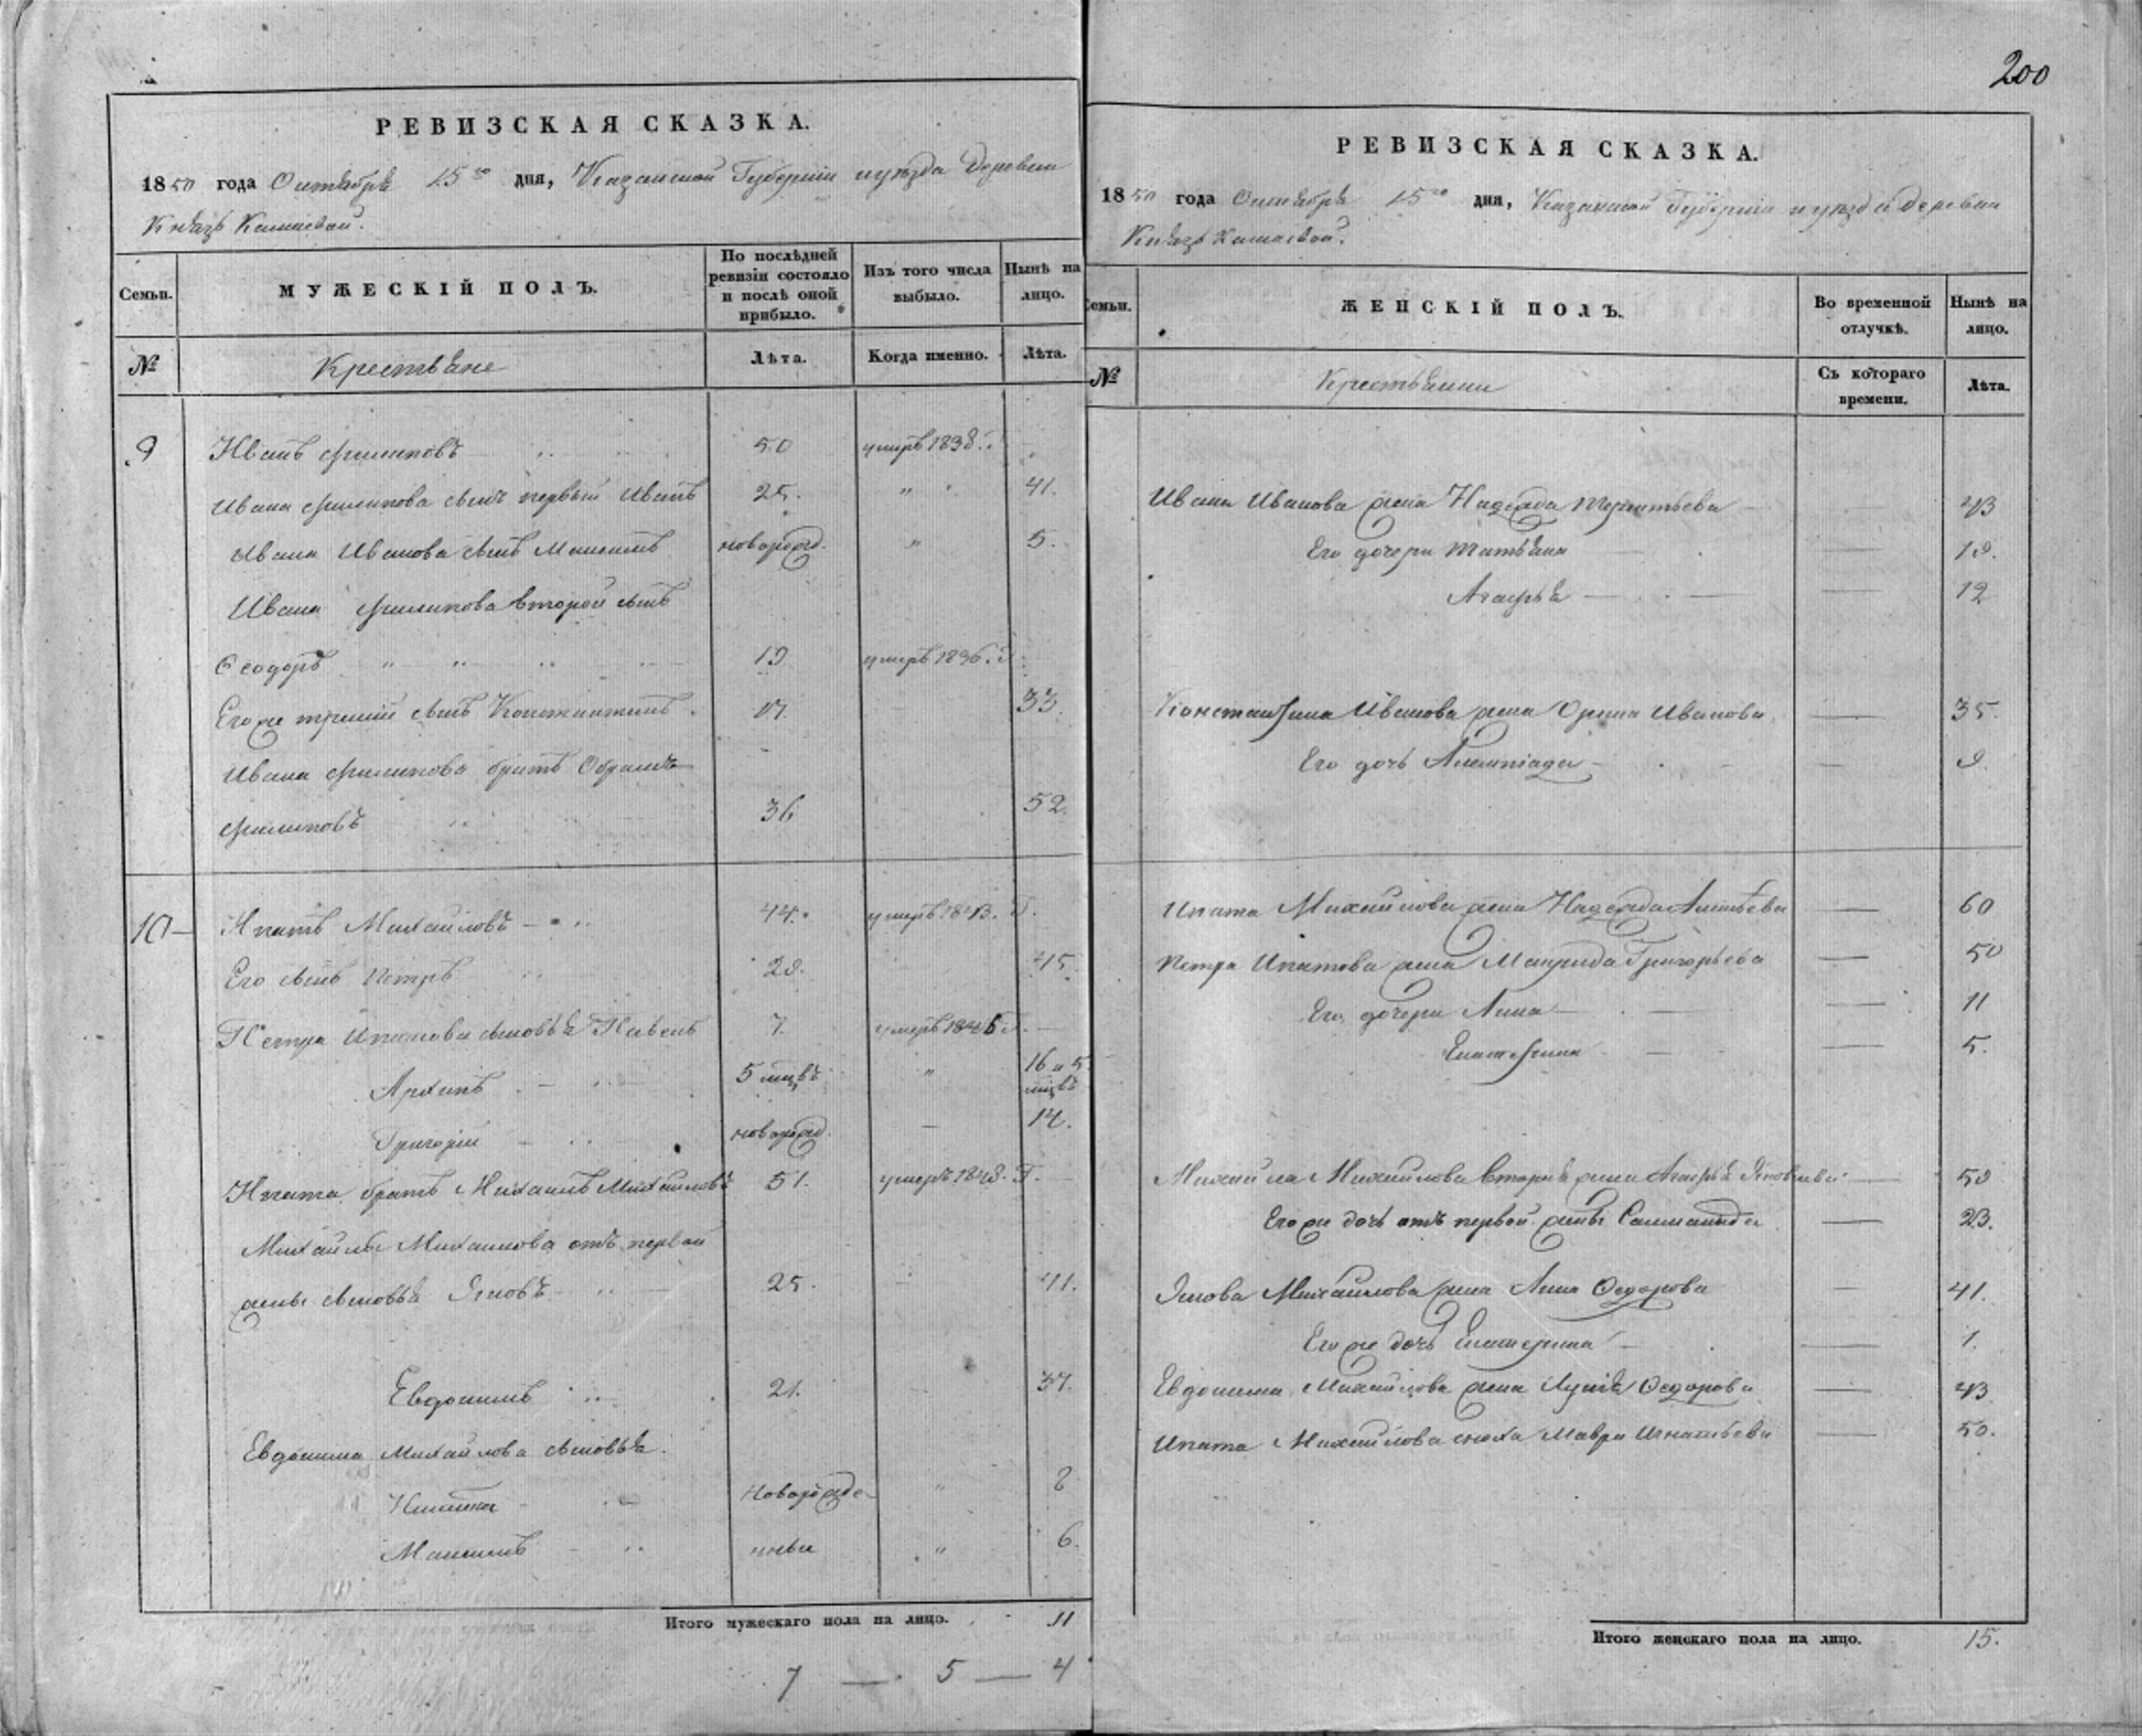 200
РЕВИЗСКАЯ СКАЗКА.
1850 года Октября 15го дня, Казанской Губернии и уезда Деревни
Князь Камаевой.
Семьи.
МУЖЕСКІЙ ПОЛЪ.
По послѣдней ревизіи состояло и послѣ оной прибыло.
Изъ того числа выбыло.
Нынѣ на лицо.
№
Крестьяне
Лѣта.
Когда именно.
Лѣта.
9 Иванъ Филиповъ 50 умеръ 1838.
Ивана Филипова сынъ первый Иванъ 25. " 41.
Ивана Иванова сынъ Максимъ новорожд. " 5.
Ивана Филипова второй сынъ
Ѳеодоръ " " 19 умеръ 1836. Г.
Его же третий сынъ Константинъ. 17. 33.
Ивана Филипова братъ Обрамъ
Филиповъ 36 52.
10 Ипатъ Михайловъ 44. умеръ 1843. Г.
Его сынъ Петръ 29. 45.
Петра Ипатова сыновья Павелъ 7. умеръ 1846 Г.
Архипъ 5 мцвъ " 16 и 5 мцвъ
Григорий новорожд. — 14.
Ипата братъ Михаилъ Михайловъ 51. умеръ 1848. Г.
Михайлы Михайлова отъ первой
жены сыновья Яковъ 25. 41.
Евдокимъ 21. 37.
Евдокима Михайлова сыновья.
Никита новорожде- " 8
Максимъ нные " 6.
Итого мужескаго пола на лицо. 11
7 — 5 — 4
РЕВИЗСКАЯ СКАЗКА.
1850 года Октября 15го дня, Казанской Губернии и уезда деревни
Князь Камаевой.
Семьи.
ЖЕНСКІЙ ПОЛЪ.
Во временной отлучкѣ.
Нынѣ на лицо.
№
Крестьянки
Съ котораго времени.
Лѣта.
Ивана Иванова жена Надежда Терентьева 43
Его дочери Татьяна — 19.
Агафья — — 12
Константина Иванова жена Орина Иванова — 35.
Его дочь — 9.
Ипата Михайлова жена Надежда — 60
Петра Ипатова жена Григорьева — 50
Его дочери Анна — — 11
Екатерина — — 5.
Михайла Михайлова вторая жена Агафья Яковлева — 59
Его же дочь отъ первой жены — 23.
Якова Михайлова жена Анна Ѳедорова — 41.
Его же дочь Екатерина — 1.
Евдокима Михайлова жена Ѳедорова — 43
Ипата Михайлова сноха Мавра Игнатьева — 50.
Итого женскаго пола на лицо. 15.